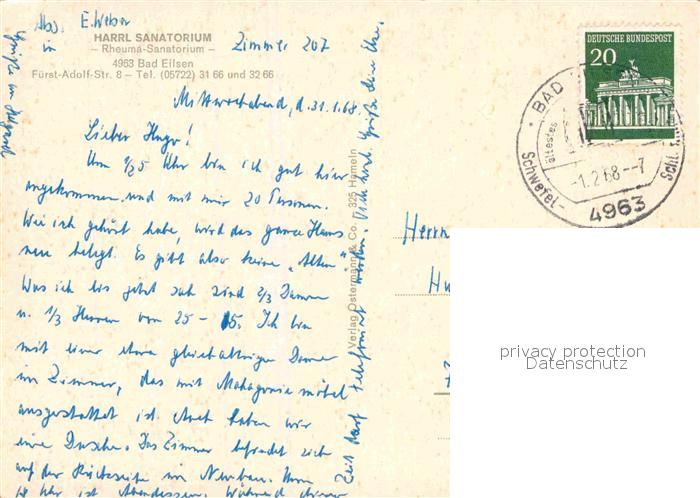 Abs. E. Weber
HARRL SANATORIUM
in
– Rheuma-Sanatorium –
4963 Bad Eilsen
Fürst-Adolf-Str. 8 – Tel. (05722) 31 66 und 32 66
Zimmer 207
Mittwochabend, d. 31.1.68.
Lieber Hugo!
Um 1/25 Uhr bin ich gut hier
angekommen und mit mir 20 Personen.
Wie ich gehört habe, wird das ganze Haus
neu belegt. Es gibt also keine „Alten“
Was ich bis jetzt sah sind 2/3 Damen
u. 1/3 Herren von 25 – 65. Ich bin
mit einer etwa gleichaltrigen Dame
im Zimmer, das mit Mahagonie möbel
ausgestattet ist. Auch haben wir
eine Dusche. Das Zimmer befindet sich
auf der Rückseite im Neubau. Um
18 Uhr ist Abendessen. Während dieser
Zeit darf telefoniert werden.
Grüße Deine
Grüße an
Verlag Ostermann & Co., 325 Hameln
DEUTSCHE BUNDESPOST
20
BAD
ältestes
Schwefel-
Schl
-1.2.68.--7
4963
Herrn
Hu
privacy protection
Datenschutz